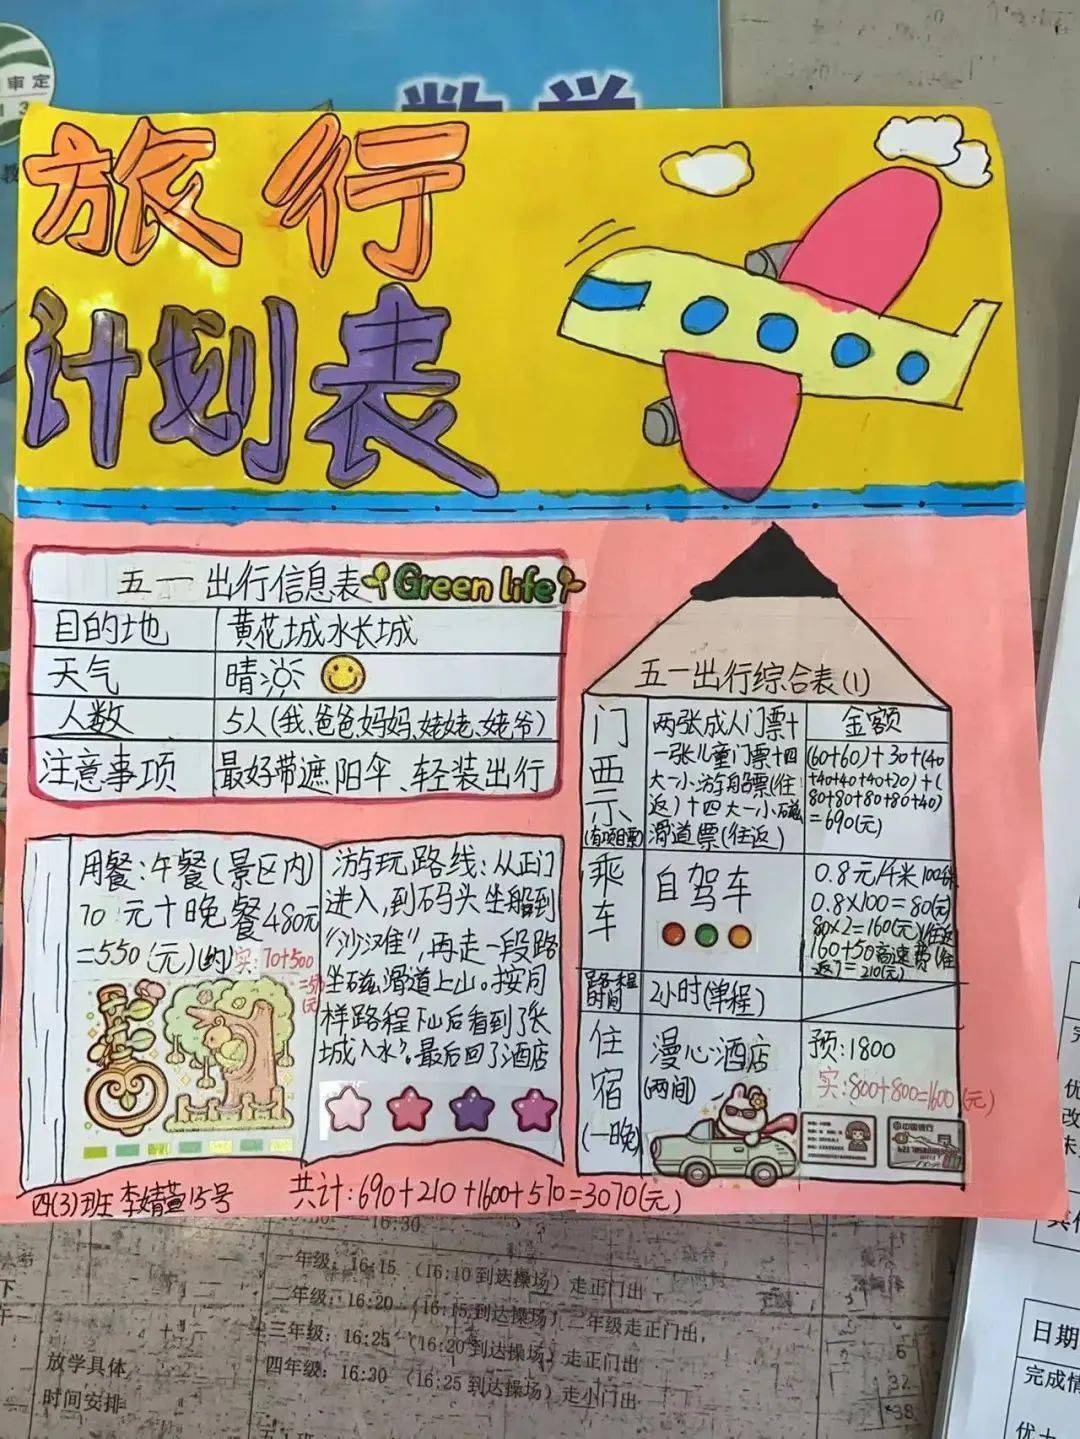 审定
数学
旅行
计划表
五一出行信息表 Green life
目的地 黄花城水长城
天气 晴
人数 5人(我、爸爸、妈妈、姥姥、姥爷)
注意事项 最好带遮阳伞、轻装出行
用餐:午餐(景区内)
70元+晚餐480元
=550(元)(约)
实:70+500
=570
(元)
游玩路线:从正门
进入,到码头坐船到
“沙滩”,再走一段路
坐磁滑道上山。按同
样路程下山后看到了“长
城入水”。最后回了酒店
五一出行综合表(1)
门票
(有项目票)
两张成人门票+
一张儿童门票+四
大一小游船票(往
返)+四大一小磁
滑道票(往返)
金额
(60+60)+30+(40
+40+40+40+20)+(
80+80+80+80+40)
=690(元)
乘车
自驾车
0.8元/千米 100千米
0.8×100=80(元)
80×2=160(元)(往返)
160+50高速费(往
返)=210(元)
路程
时间
2小时(单程)
住宿
(一晚)
漫心酒店
(两间)
预:1800
实:800+800=1600(元)
中国银行
四(3)班 李婧萱15号
共计:690+210+1600+570=3070(元)
16:30
一年级: 16:15 (16:10到达操场)走正门出
二年级: 16:20 (16:15到达操场)二年级走正门出,
三年级: 16:25 (16:20到达操场)走正门出
四年级: 16:30 (16:25到达操场)走小门出
放学具体
时间安排
32
38
日期
完成情